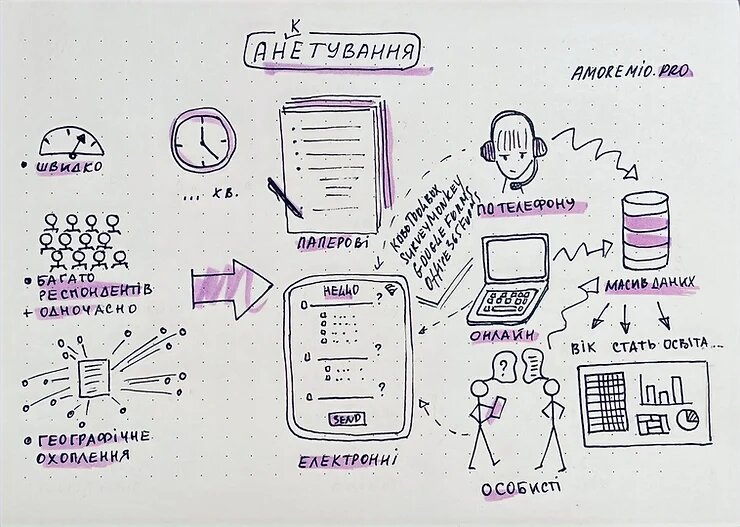 АНКЕТУВАННЯ
AMOREMIO.PRO
• ШВИДКО
... ХВ.
ПАПЕРОВІ
KOBOTOOLBOX
SURVEYMONKEY
GOOGLE FORMS
OFFICE 365 FORMS
ПО ТЕЛЕФОНУ
• БАГАТО
РЕСПОНДЕНТІВ
+ ОДНОЧАСНО
HELLO
?
?
?
SEND
ЕЛЕКТРОННІ
ОНЛАЙН
МАСИВ ДАНИХ
ВІК СТАТЬ ОСВІТА...
?
ОСОБИСТІ
• ГЕОГРАФІЧНЕ
ОХОПЛЕННЯ